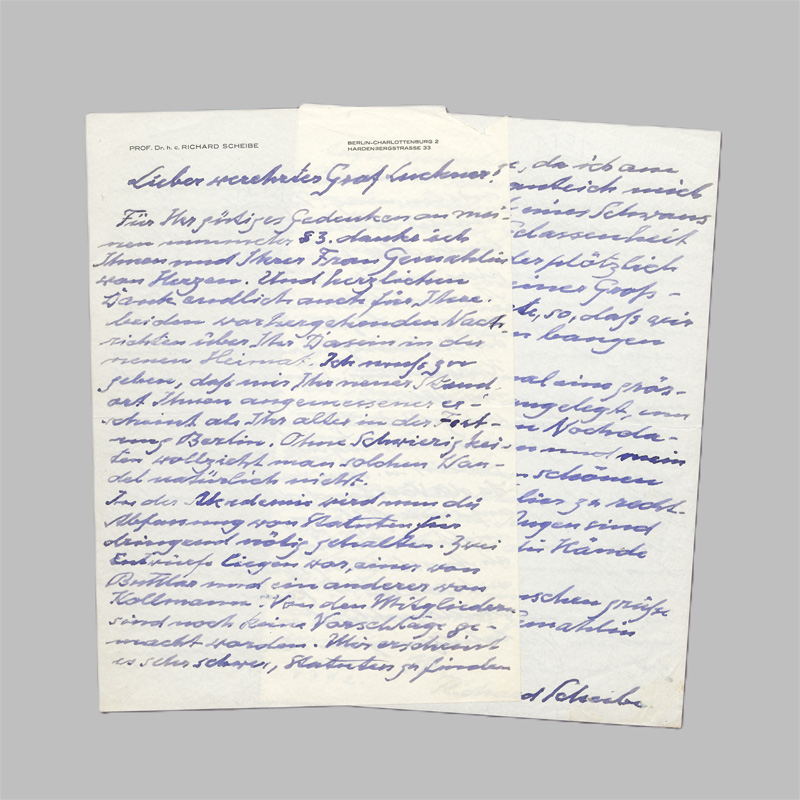 PROF. Dr. h. c. RICHARD SCHEIBE
BERLIN-CHARLOTTENBURG 2
HARDENBERGSTRASSE 33
Lieber verehrter Graf Luckner!
Für Ihr gütiges Gedenken an mei-
nen nunmehr 83. danke ich
Ihnen und Ihrer Frau Gemahlin
von Herzen. Und herzlichen
Dank endlich auch für Ihre
beiden vorhergehenden Nach-
richten über Ihr Dasein in der
neuen Heimat. Ich muß zu
geben, daß mir Ihr neuer Stand
ort Ihnen angemessener er-
scheint als Ihr alter in der Fest-
ung Berlin. Ohne Schwierigkei-
ten vollzieht man solchen Wan-
del natürlich nicht.
In der Akademie wird nun die
Abfassung von Statuten für
dringend nötig gehalten. Zwei
Entwürfe liegen vor, einer von
Buttlar und ein anderer von
Kollmann. Von den Mitgliedern
sind noch keine Vorschläge ge-
macht worden. Mir erscheint
es sehr schwer, Statuten zu finden
da ich am
mich
eines Schwans
elassenheit
der plötzlich
einer Groß-
so, daß wir
bangen
mal eine grös-
angelegt, um
Nochda-
und mein
schönen
hier zu recht-
Augen sind
die Hände
nschen grüße
emahlin
d Scheibe